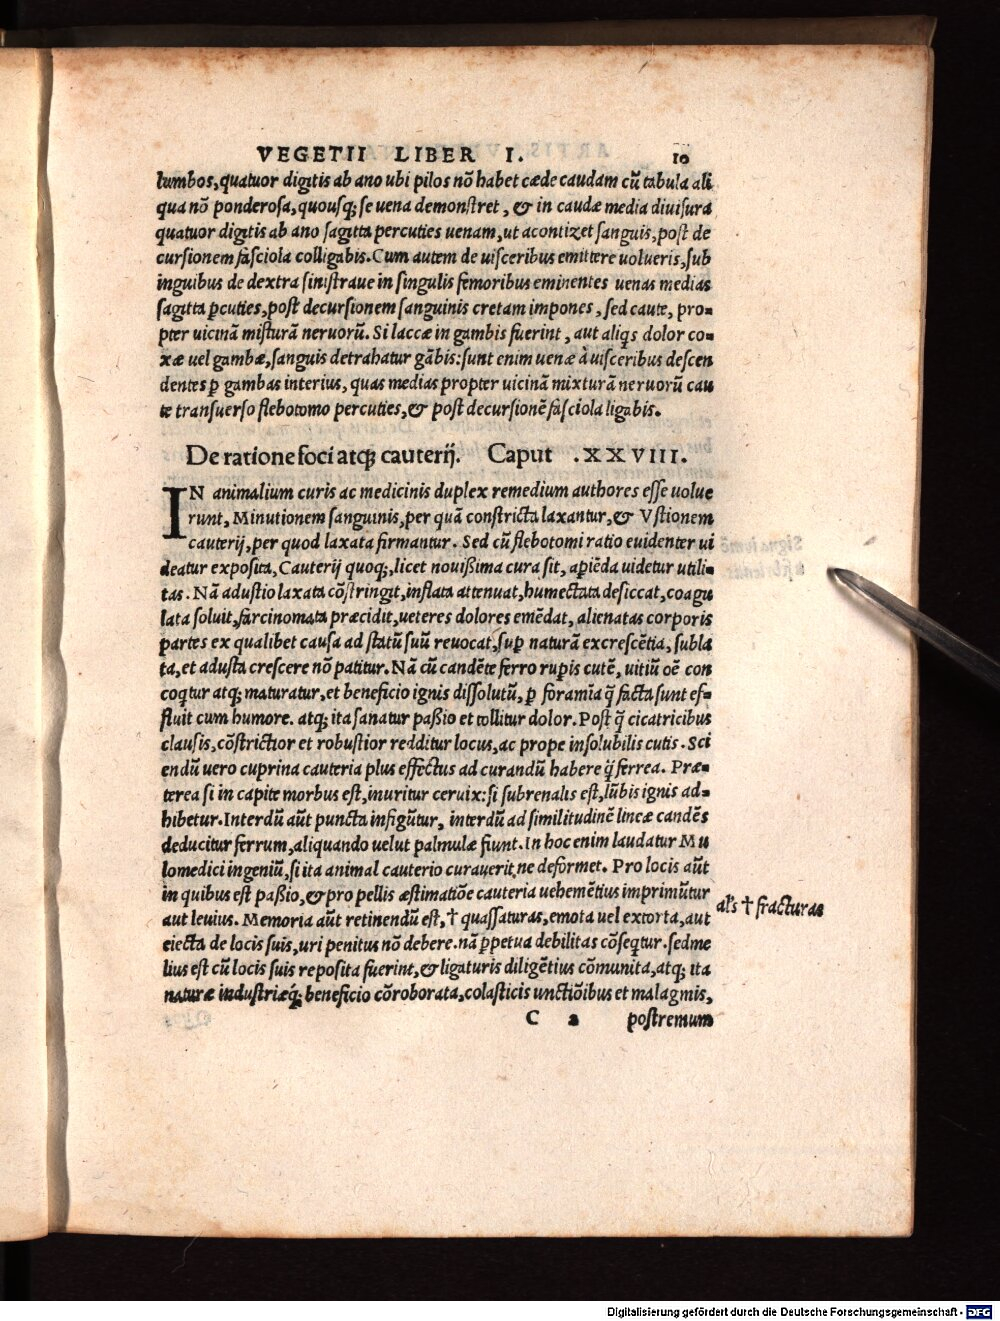 VEGETII LIBER I. 10
lumbos, quatuor digitis ab ano ubi pilos nõ habet cæde caudam cũ tabula ali
qua nõ ponderosa, quousq; se uena demonstret, & in caudæ media diuisura
quatuor digitis ab ano sagitta percuties uenam, ut acontizet sanguis, post de
cursionem fasciola colligabis. Cum autem de uisceribus emittere uolueris, sub
inguibus de dextra sinistraue in singulis femoribus eminentes uenas medias
sagitta ꝑcuties, post decursionem sanguinis cretam impones, sed caute, pro=
pter uicinã misturã neruorũ. Si laccæ in gambis fuerint, aut aliqs dolor co=
xæ uel gambæ, sanguis detrahatur gãbis: sunt enim uenæ à uisceribus descen
dentes ꝑ gambas interius, quas medias propter uicinã mixturã neruorũ cau
te transuerso flebotomo percuties, & post decursionẽ fasciola ligabis.
De ratione foci atq; cauterij. Caput .XXVIII.
IN animalium curis ac medicinis duplex remedium authores esse uolue
runt, Minutionem sanguinis, per quã constricta laxantur, & Vstionem
cauterij, per quod laxata firmantur. Sed cũ flebotomi ratio euidenter ui
deatur exposita, Cauterij quoq;, licet nouißima cura sit, apiẽda uidetur utili=
tas. Nã adustio laxata cõstringit, inflata attenuat, humectata desiccat, coagu
lata soluit, farcinomata præcidit, ueteres dolores emẽdat, alienatas corporis
partes ex qualibet causa ad statũ suũ reuocat, suꝑ naturã excrescẽtia, subla
ta, et adusta crescere nõ patitur. Nã cũ candẽte ferro rupis cutẽ, uitiũ oẽ con
coqtur atq; maturatur, et beneficio ignis dissolutũ, ꝑ foramĩa q̃ facta sunt ef=
fluit cum humore. atq; ita sanatur paßio et tollitur dolor. Post q̃ cicatricibus
clausis, cõstrictior et robustior redditur locus, ac prope insolubilis cutis. Sci
endũ uero cuprina cauteria plus effectus ad curandũ habere q̃ ferrea. Præ=
terea si in capite morbus est, inuritur ceruix: si subrenalis est, lũbis ignis ad=
hibetur. Interdũ aũt puncta infigũtur, interdũ ad similitudinẽ lineæ candẽs
deducitur ferrum, aliquando uelut palmulæ fiunt. In hoc enim laudatur Mu
lomedici ingeniũ, si ita animal cauterio curauerit, ne deformet. Pro locis aũt
in quibus est paßio, & pro pellis æstimatiõe cauteria uehemẽtius imprimũtur
aut leuius. Memoria aũt retinendũ est, † quassaturas, emota uel extorta, aut
eiecta de locis suis, uri penitus nõ debere. nã ꝑpetua debilitas cõseqtur. sed me
lius est cũ locis suis reposita fuerint, & ligaturis diligẽtius cõmunita, atq; ita
naturæ industriæq; beneficio cõroborata, colasticis unctiõibus et malagmis,
als † fracturas
C 2 postremum
Digitalisierung gefördert durch die Deutsche Forschungsgemeinschaft - DFG